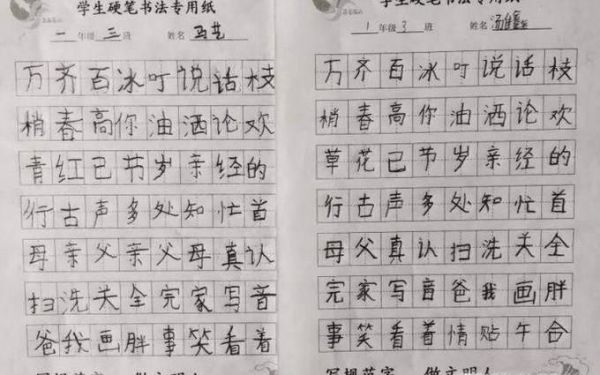 学生硬笔书法专用纸
一年级 三班 姓名 马艺
万齐百冰叮说话枝
梢春高你油洒论欢
青红已节岁亲经的
行古声多处知忙首
母亲父亲父母真认
扫洗关全完家写音
爸我画胖事笑看着
写规范字 做文明人
学生硬笔书法专用纸
1年级 3班 姓名
万齐百冰叮说话枝
梢春高你油洒论欢
草花已节岁亲经的
行古声多处知忙首
母父真认扫洗关全
完家写音爸我画胖
事笑看着情贴午合
写规范字 做文明人